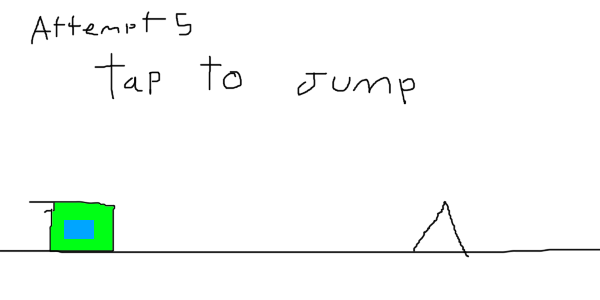 Attempt 5
tap to Jump